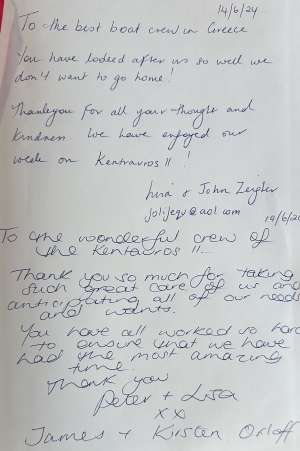 14/6/24
To the best boat crew in Greece
You have looked after us so well we
don't want to go home!
Thankyou for all your thought and
kindness. We have enjoyed our
week on Kentavros II !
& John Zeigler
@aol.com
14/6/24
To the wonderful crew of
the Kentavros II....
Thank you so much for taking
such great care of us and
anticipating all of our needs
and wants.
You have all worked so hard
to ensure that we have
had the most amazing
time.
Thank you
Peter + Lisa
xx
James + Kirsten Orloff